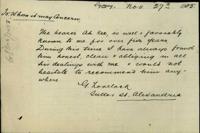 Nov. 27th 1905.
To Whom it may Concern
The bearer Ah Kee, is well & favorably
known to me for over five years
During this time I have always found
him honest, clean & obliging in all
his dealings with me & would not
hesitate to recommend him any-
where
G. Lovelock
St. Alexandria